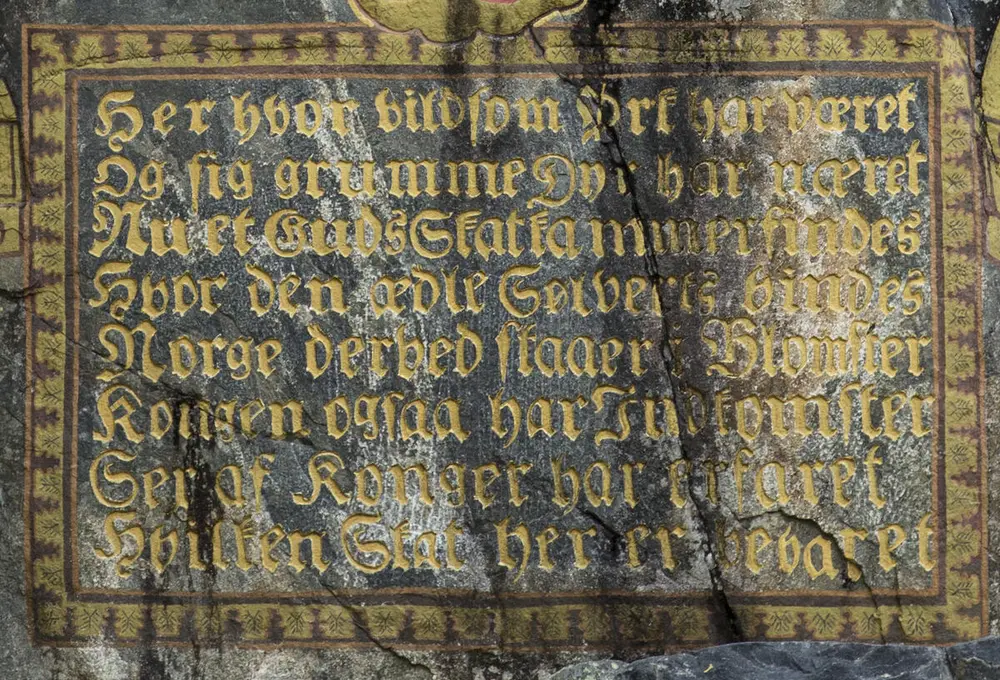 Her hvor vildsom Ørk har været
Og sig grumme Dyr har næret
Nu et Guds Skatkammer findes
Hvor den ædle Sølvert's bindes
Norge derved staaer i Blomster
Kongen ogsaa har Indkomster
Ser af Konger har erfaret
Hvilken Skat her er bevaret